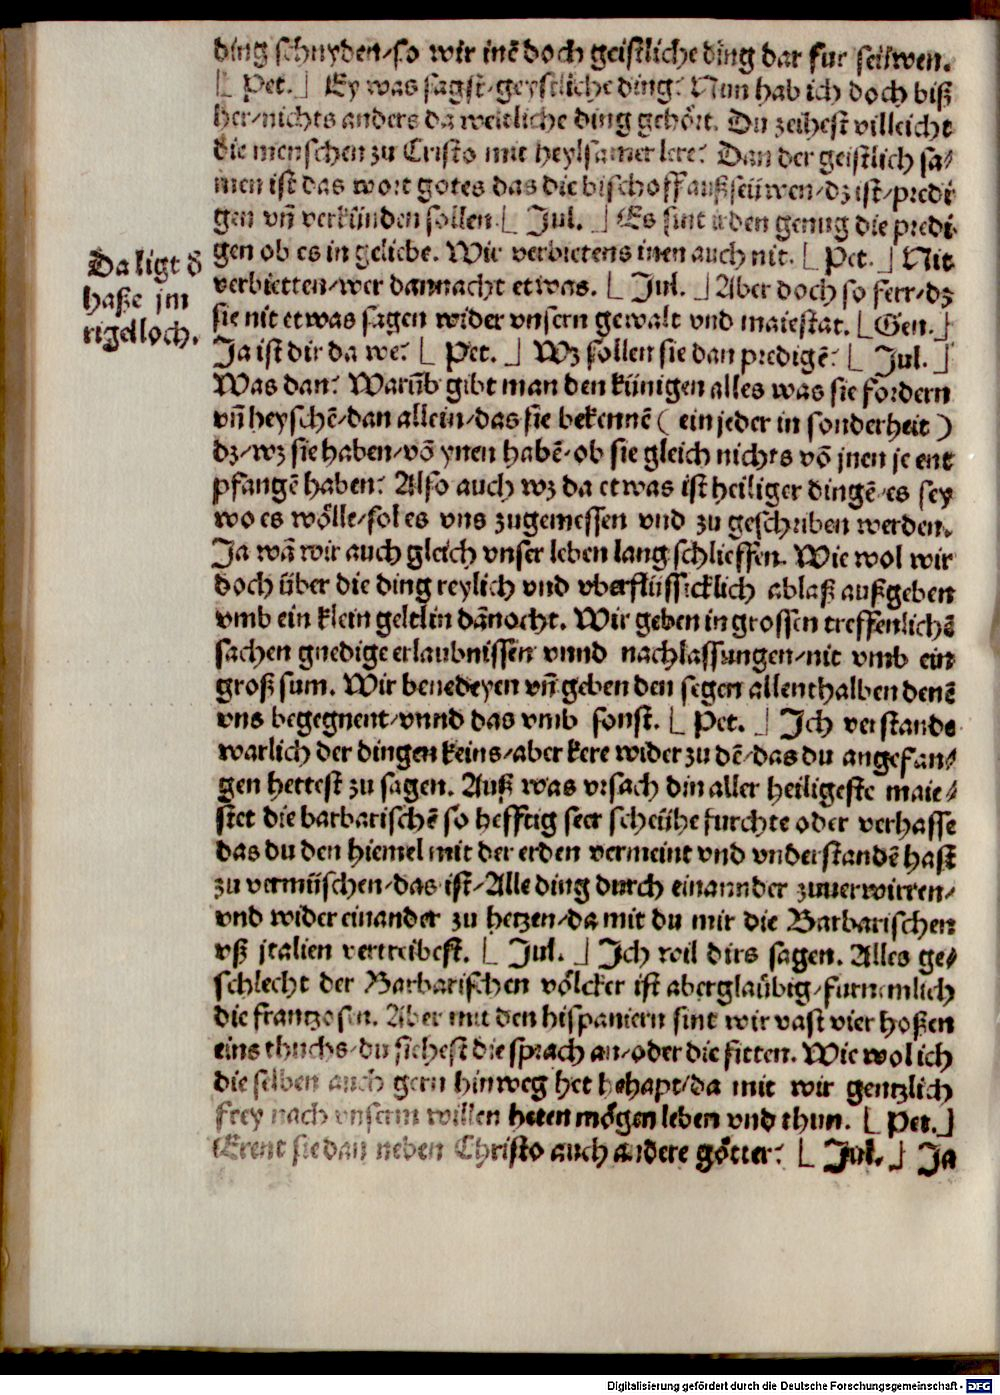 ding schnyden/so wir inē doch geistliche ding dar fur seiiwen.
⌊ Pet. ⌋ Ey was sagst/geystliche ding? Nun hab ich doch biß
her/nichts anders dā weltliche ding gehört. Du zeihest villeicht
die menschen zu Cristo mit heylsamer lere? Dan der geistlich sa/
men ist das wort gotes das die bischoff außseiiwen/dz ist/predi
gen vñ verkünden sollen ⌊ Jul. ⌋ Es sint irden genug die predi-
Da ligt d̕
haße jm
rigelloch.
gen ob es in geliebe. Wir verbietens inen auch nit. ⌊ Pet. ⌋ Nit
verbietten/wer dannacht etwas. ⌊ Jul. ⌋ Aber doch so ferr/dz
sie nit etwas sagen wider vnsern gewalt vnd maiestat. ⌊Gen.⌋
Ja ist dir da we? ⌊ Pet. ⌋ Wz sollen sie dan predigē? ⌊ Jul. ⌋
Was dan? Warūb gibt man den künigen alles was sie fordern
vñ heyschē/dan allein/das sie bekennē ( ein jeder in sonderheit )
dz/wz sie haben/vō ynen habē/ob sie gleich nichts vō jnen je ent
pfangē haben? Also auch wz da etwas ist heiliger dingē/es sey
wo es wölle/sol es vns zugemessen vnd zu geschriben werden.
Ja wā wir auch gleich vnser leben lang schlieffen. Wie wol wir
doch über die ding reylich vnd vberflüssicklich ablaß außgeben
vmb ein klein geltlin dānocht. Wir geben in grossen treffenlichē
sachen gnedige erlaubnissen vnnd nachlassungen/nit vmb ein
groß sum. Wir benedeyen vñ geben den segen allenthalben denē
vns begegnent/vnnd das vmb sonst. ⌊ Pet. ⌋ Ich verstande
warlich der dingen keins/aber kere wider zu dē/das du angefan/
gen hettest zu sagen. Auß was vrsach din aller heiligeste maie/
stet die barbarischē so hefftig seer scheühe furchte oder verhasse
das du den hiemel mit der erden vermeint vnd vnderstandē hast
zu vermiischen/das ist/Alle ding durch einannder zuuerwirren/
vnd wider einander zu hetzen/da mit du mir die Barbarischen
vß jtalien vertreibest. ⌊ Jul. ⌋ Ich wil dirs sagen. Alles ge/
schlecht der Barbarischen völcker ist aberglaübig/furnemlich
die frantzosen. Aber mit den hispaniern sint wir vast vier hoßen
eins thuchs/du sichest die sprach an/oder die sitten. Wie wol ich
die selben auch gern hinweg het behapt/da mit wir gentzlich
frey nach vnserm willen heten mögen leben vnd thun. ⌊ Pet.⌋
Erent sie dan neben Christo auch andere götter? ⌊ Jul. ⌋ Ja
Digitalisierung gefördert durch die Deutsche Forschungsgemeinschaft - DFG